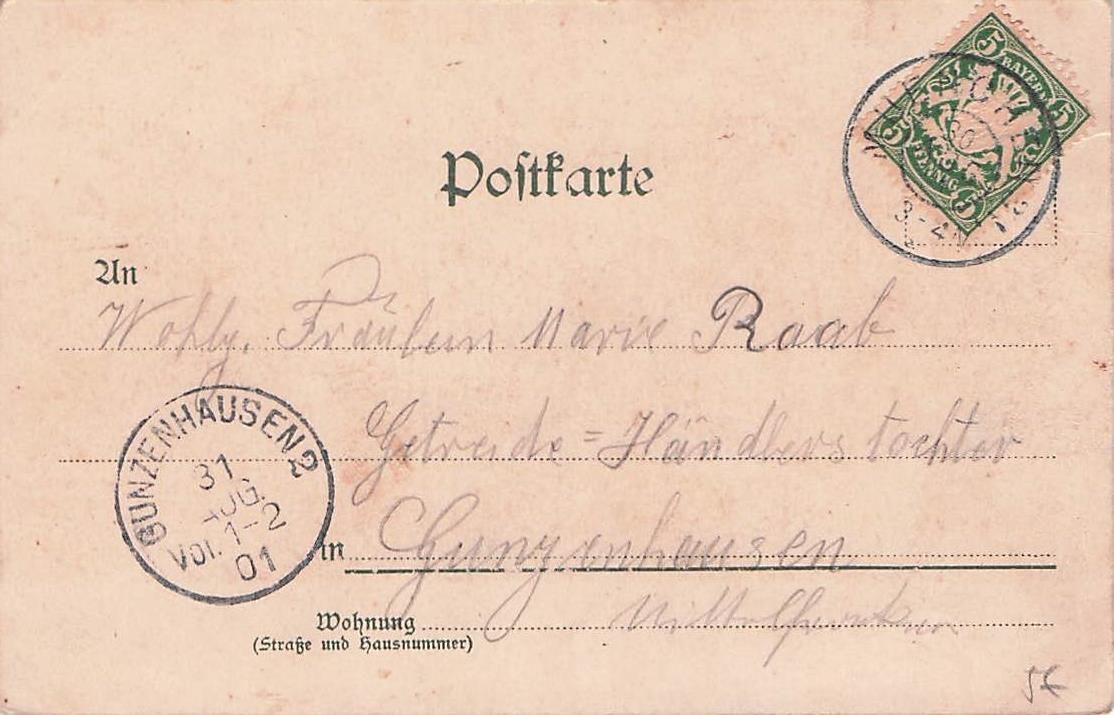 Postkarte
5 BAYERN 5
5 PFENNIG 5
MÜENCHEN
30
3-4N
An
Wohlg. Fräulein Marie Raab
GUNZENHAUSEN 2
31
AUG.
Vor. 1-2
01
Getreide=Händlers tochter
in Gunzenhausen
Wohnung Mittelfranken
(Straße und Hausnummer)
5€